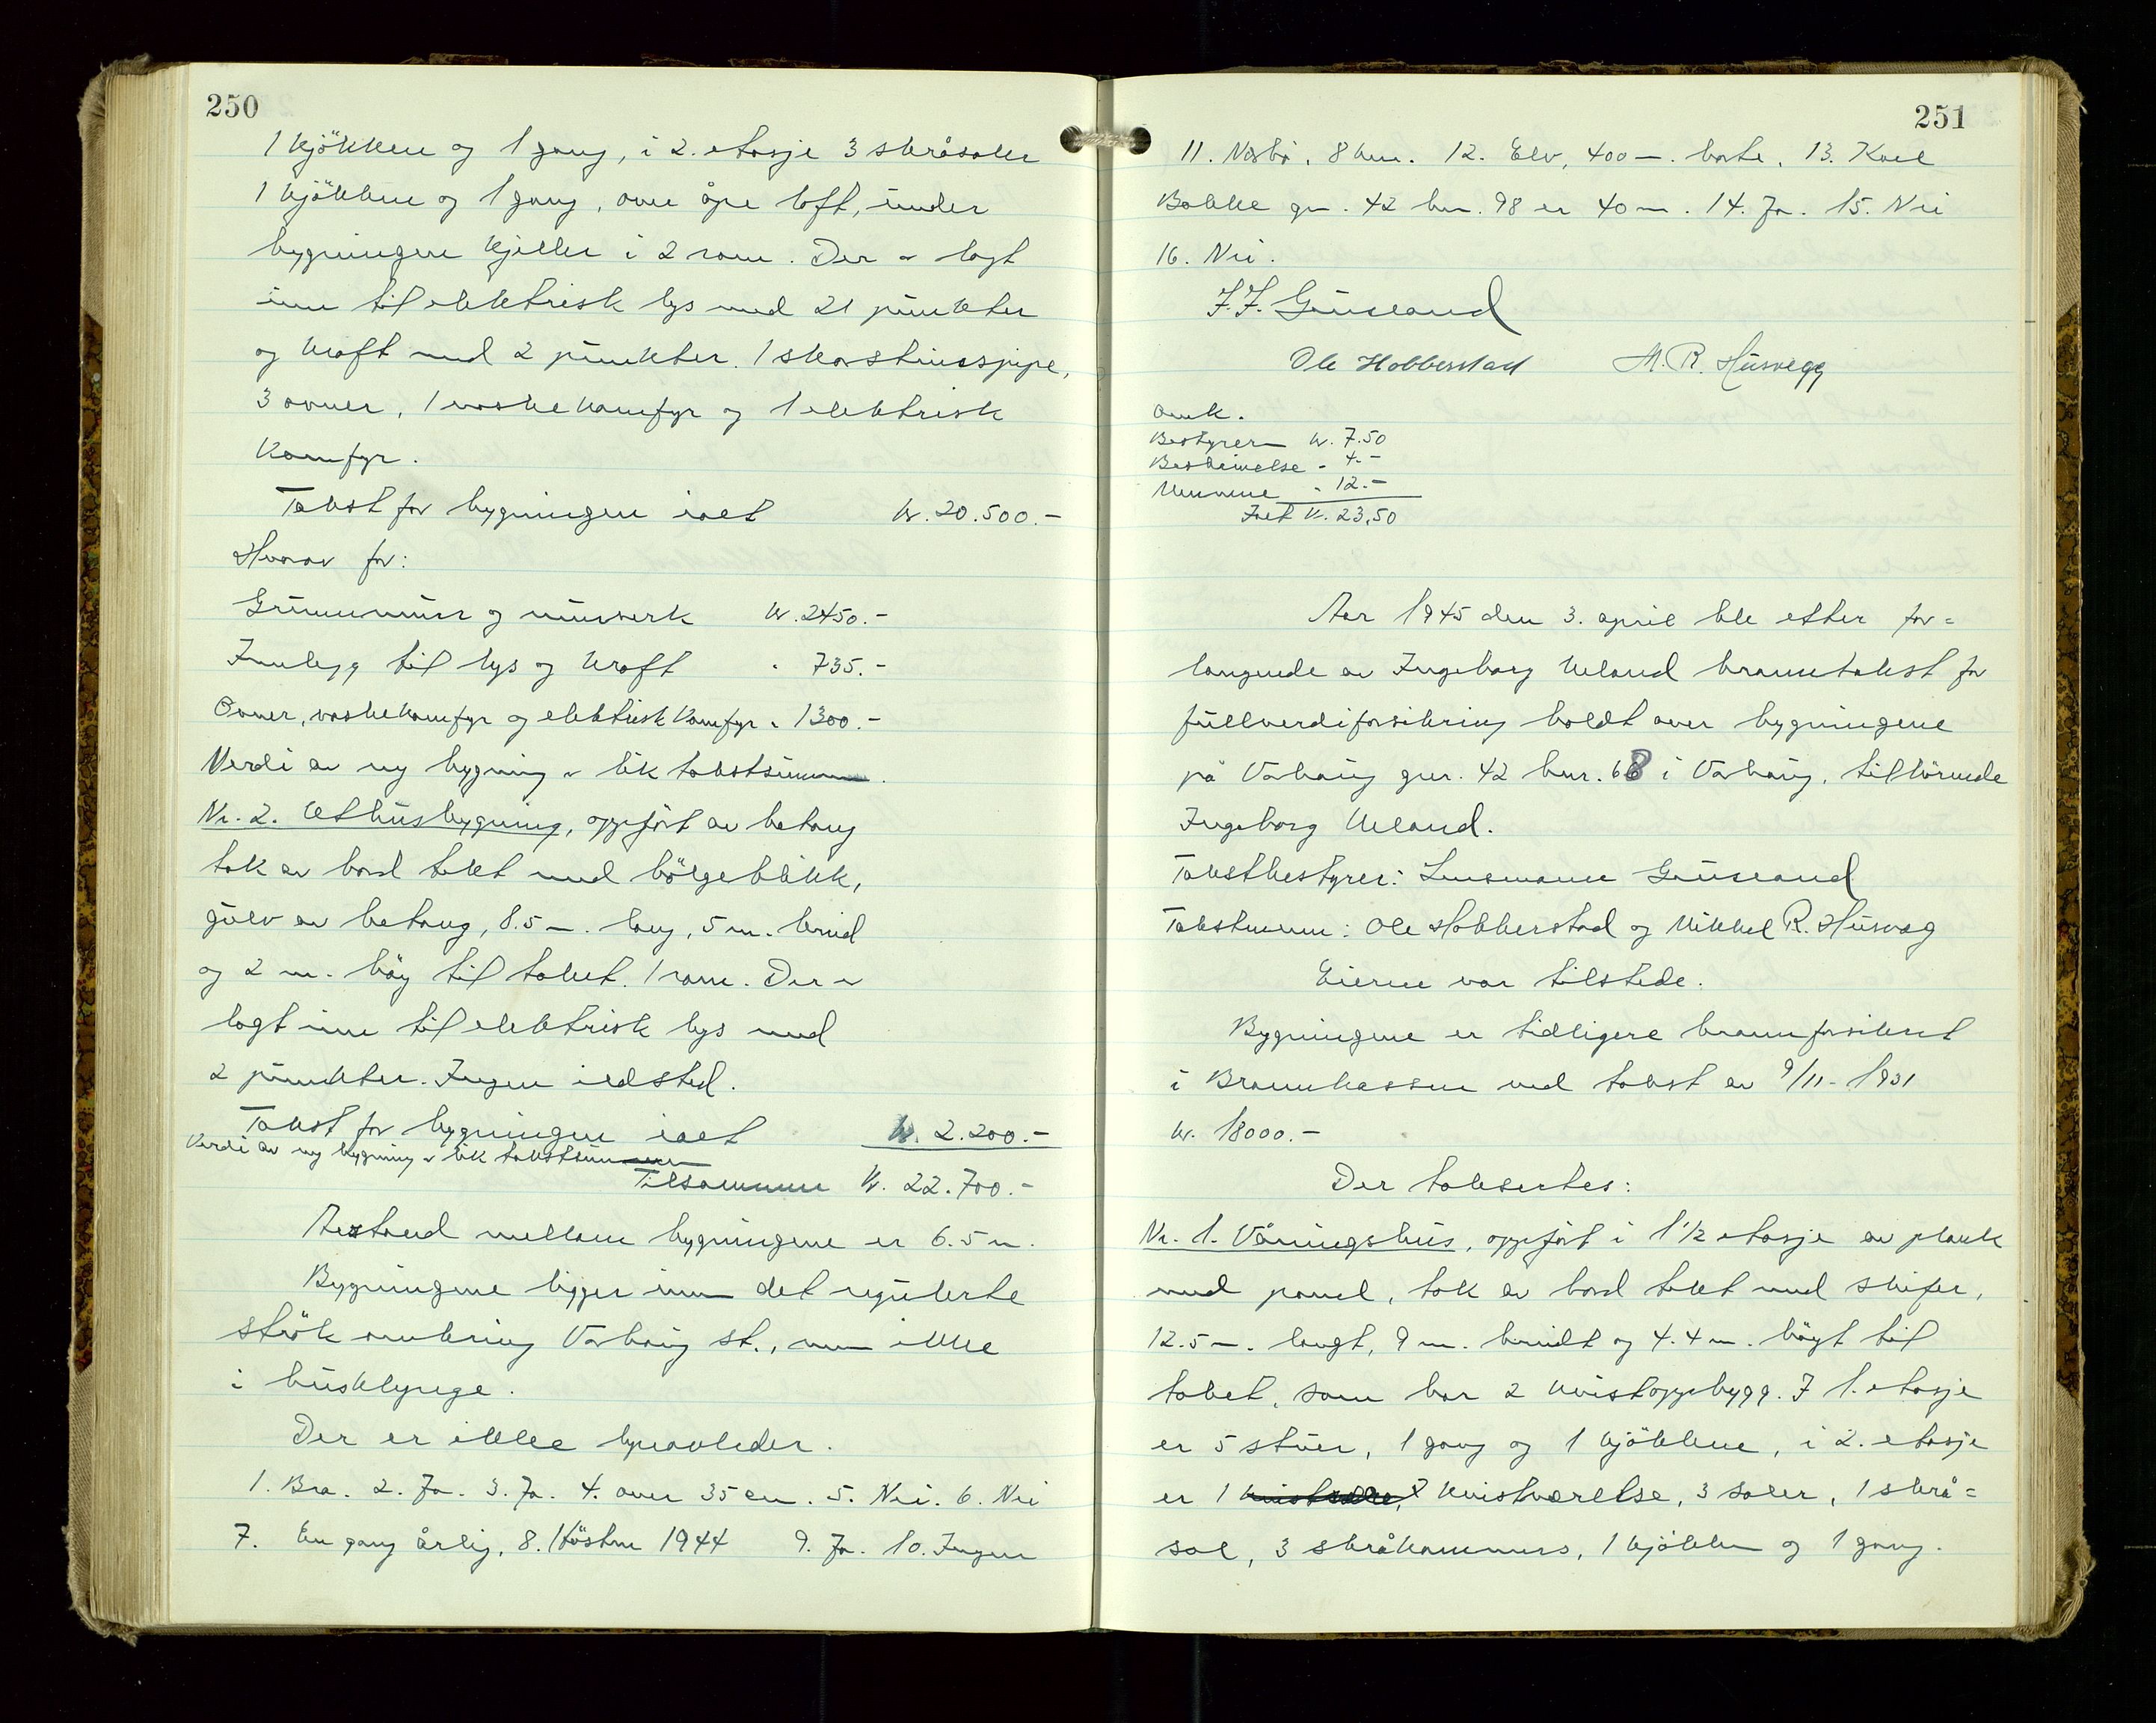 250
1 kjökken og 1 gang, i 2. etasje 3 skråsaler
1 kjökken og 1 gang, over åpe loft, under
bygningen kjeller i 2 rom. Der er lagt
inn til elektrisk lys med 21 punkter
og kraft med 2 punkter. 1 skorstinsspipe,
3 ovner, 1 vaskekomfyr og 1 elektrisk
komfyr.
Takst for bygningen ialt kr. 20.500.-
Hvorav for:
Grunnmur og murverk kr. 2450.-
Innlegg til lys og kraft " 735.-
Ovner, vaskekomfyr og elektrisk komfyr " 1300.-
Verdi av ny bygning er lik takstsummen.
Nr. 2. Uthusbygning, oppfört av betong
tak av bord tekt med bölgeblikk,
gulv av betong, 8.5 m. lang, 5 m. breid
og 2 m. höy til taket. 1 rom. Der er
lagt inn til elektrisk lys med
2 punkter. Ingen ildsted.
Takst for bygningen ialt kr. 2.200.-
Verdi av ny bygning er lik takstsummen
Tilsammen kr. 22.700.-
Avstand mellom bygningene er 6.5 m.
Bygningene ligger innen det regulerte
strök omkring Varhaug st., men ikke
i husklynge.
Der er ikke lynavleder.
1. Bra. 2. Ja. 3. Ja. 4. over 35 cm. 5. Nei. 6. Nei
7. En gang årlig, 8. Hösten 1944 9. Ja. 10. Ingen
251
11. Nærbö, 8 km. 12. Elv, 400 m. borte. 13. Karl
Bakke gn. 42 bn. 98 er 40 m. 14. Ja. 15. Nei
16. Nei.
J. J. Grusland
Ole Hobberstad M. R. Husvegg
Omk.
Bestyreren kr. 7.50
Beskrivelse " 4.-
Mennene " 12.-
Ialt kr. 23,50
Aar 1945 den 3. april ble etter for=
langende av Ingeborg Ueland branntakst for
fullverdiforsikring holdt over bygningene
på Varhaug gnr. 42 bnr. 68 i Varhaug, tilhörende
Ingeborg Ueland.
Takstbestyrer: Lensmann Grusland
Takstmenn: Ole Hobberstad og Mikkel R. Husveg
Eieren var tilstede.
Bygningene er tidligere brannforsikret
i Brannkassen ved takst av 9/11-1931
kr. 18000.-
Der taksertes:
Nr. 1. Våningshus, oppfört i 1 1/2 etasje av plank
med panel, tak av bord tekt med skifer,
12.5 m. langt, 9 m. breidt og 4.4 m. höyt til
taket, som har 2 kvistoppbygg. I 1. etasje
er 5 stuer, 1 gang og 1 kjökken, i 2. etasje
er 1 kvistværelse, 3 saler, 1 skrå=
sal, 3 skråkammers, 1 kjökken og 1 gang.